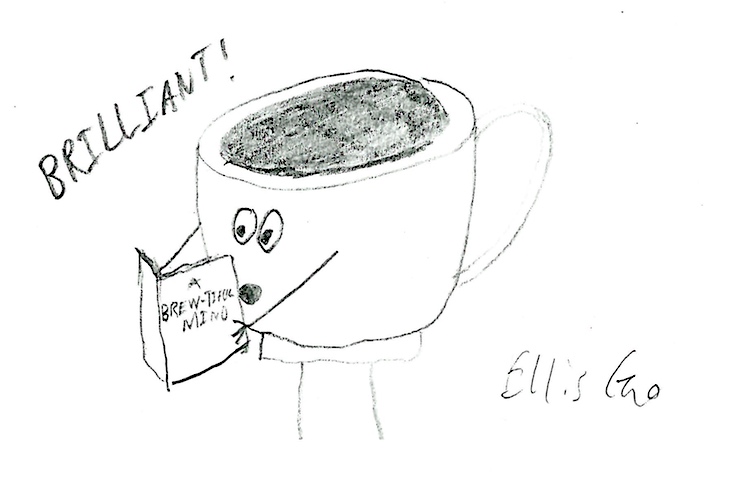 BRILLIANT!
A
BREW-TIFUL
MIND
Ellis